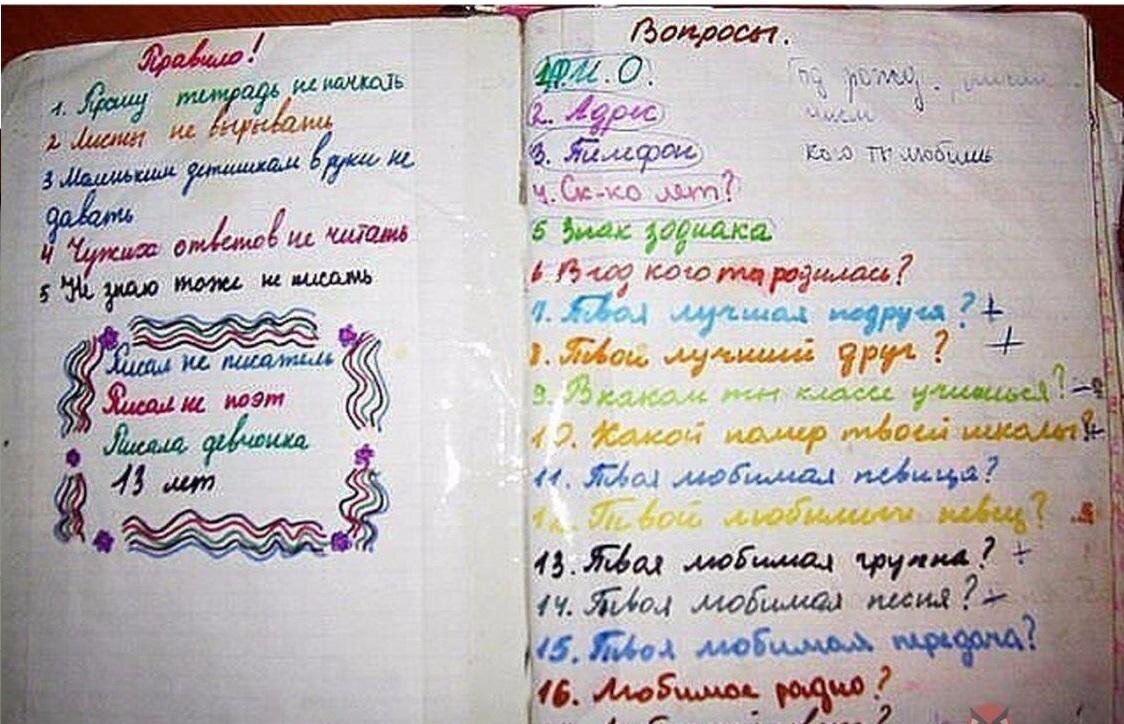 Правило!
1. Прошу тетрадь не пачкать
2 Листы не вырывать
3 Маленьким детишкам в руки не
давать
4 Чужих ответов не читать
5 Не знаю тоже не писать
Писал не писатель
Писал не поэт
Писала девчонка
13 лет
Вопросы.
1. Ф.И.О.
2. Адрес
3. Телефон
4. Ск-ко лет?
5 Знак зодиака
6 В год кого ты родилась?
7. Твоя лучшая подруга? +
8. Твой лучший друг? +
9. В каком ты классе учишься? -
10. Какой номер твоей школы? +
11. Твоя любимая певица?
12. Твой любимый певец?
13. Твоя любимая группа? +
14. Твоя любимая песня? -
15. Твоя любимая передача?
16. Любимое радио?
Год рожд.
кого ты любишь